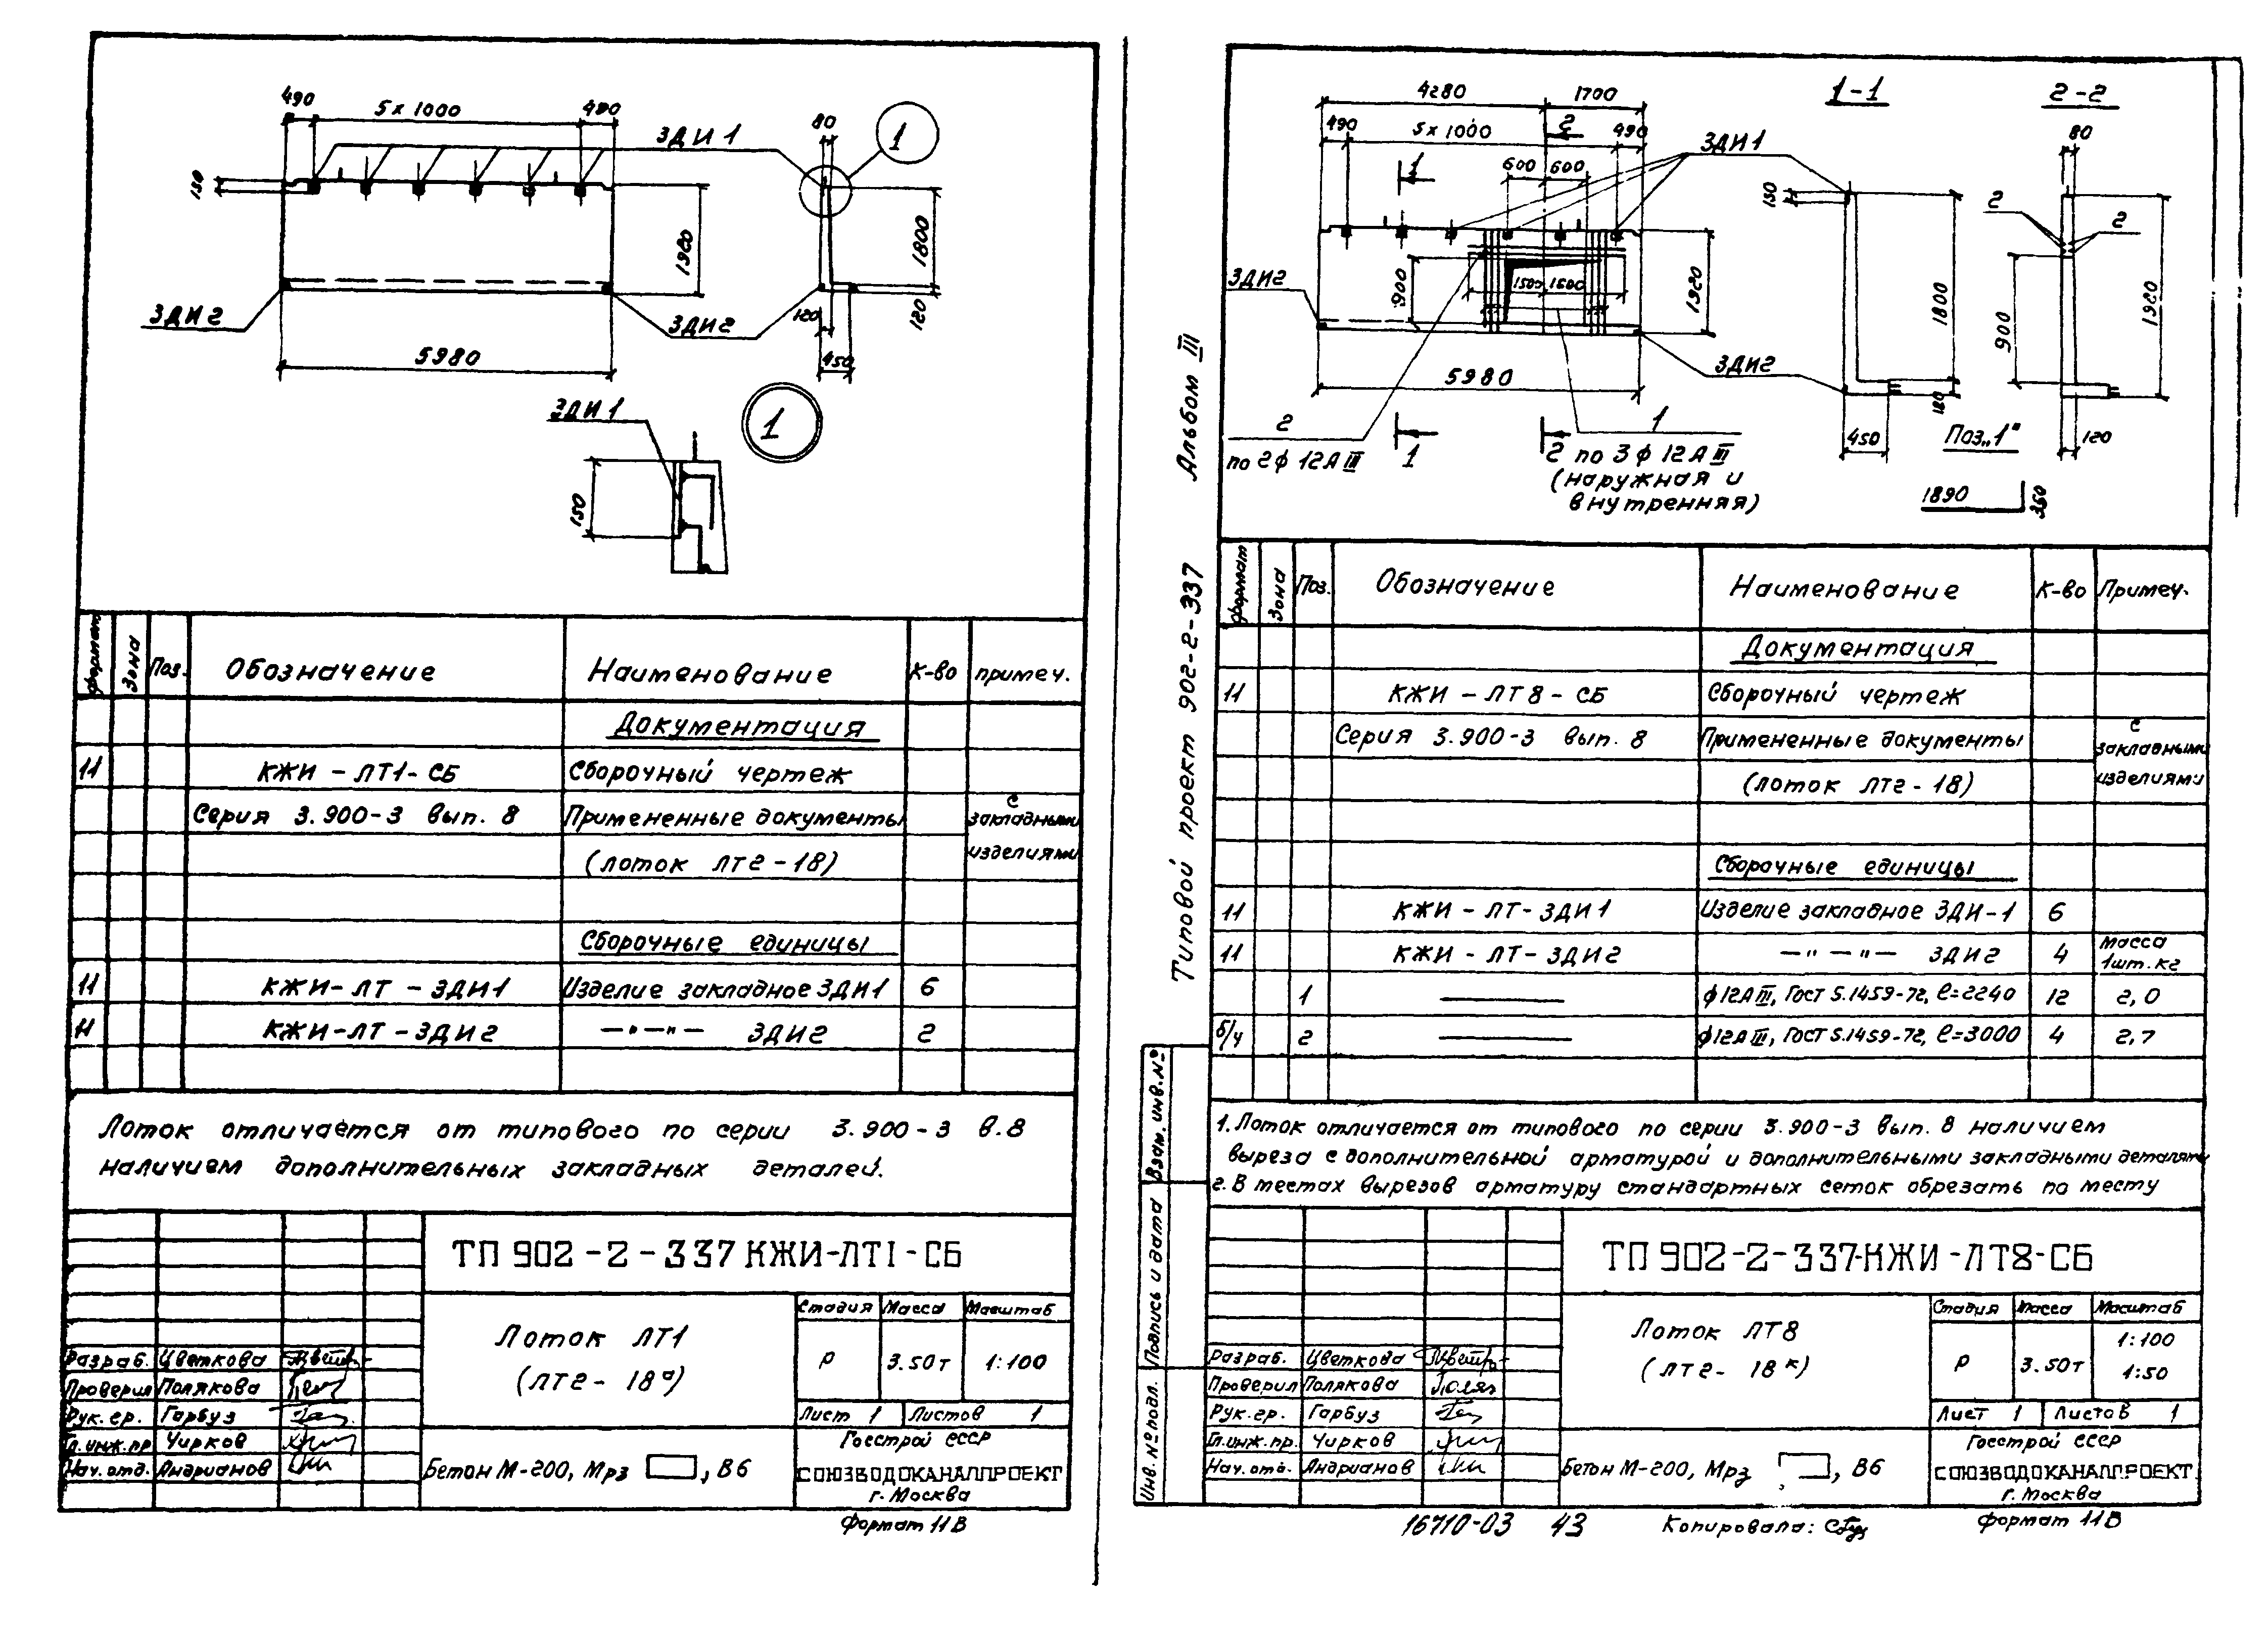 490
5х1000
490
ЗДИ 1
80
1
150
1920
1800
120
ЗДИ 2
ЗДИ2
120
450
5980
ЗДИ 1
1
150
формат
Зона
Поз.
Обозначение
Наименование
К-во
примеч.
Документация
11
КЖИ - ЛТ1- СБ
Сборочный чертеж
Серия 3.900-3 вып. 8
Примененные документы
с закладными изделиями
(лоток ЛТ2-18)
Сборочные единицы
11
КЖИ- ЛТ - ЗДИ1
Изделие закладное ЗДИ1
6
11
КЖИ-ЛТ-ЗДИ2
—"—"— ЗДИ2
2
Лоток отличается от типового по серии 3.900-3 в.8
наличием дополнительных закладных деталей.
ТП 902-2-337 КЖИ-ЛТ1-СБ
Стадия
Масса
Масштаб
Лоток ЛТ1
(ЛТ2- 18а)
Р
3.50т
1:100
Разраб. Цветкова
Проверил Полякова
Рук. гр. Гарбуз
Гл. инж. пр Чирков
Нач. отд. Андрианов
Лист 1
Листов 1
Бетон М-200, Мрз , В6
Госстрой СССР
СОЮЗВОДОКАНАЛПРОЕКТ
г. Москва
Формат 11В
Альбом III
Типовой проект 902-2-337
Взам. инв. №
Подпись и дата
Инв. № подл.
4280
1700
1-1
2-2
490
5х1000
2
490
ЗДИ1
80
1
600
600
150
2
2
ЗДИ2
900
1500
1500
1920
1800
900
1920
5980
ЗДИ2
120
2
1
450
120
по 2ф 12А III
1
2
по 3ф 12А III
(наружная и
внутренняя)
Поз„1"
1890
350
формат
Зона
Поз.
Обозначение
Наименование
К-во
Примеч.
Документация
11
КЖИ - ЛТ8 - СБ
Сборочный чертеж
Серия 3.900-3 вып. 8
Примененные документы
с закладными изделиями
(лоток ЛТ2-18)
Сборочные единицы
11
КЖИ - ЛТ- ЗДИ1
Изделие закладное ЗДИ-1
6
11
КЖИ - ЛТ- ЗДИ2
—"—"— ЗДИ2
4
Масса 1шт. кг
1
ф12А III, Гост 5.1459-72, ℓ=2240
12
2,0
б/ч
2
ф12А III, Гост 5.1459-72, ℓ=3000
4
2,7
1. Лоток отличается от типового по серии 3.900-3 вып. 8 наличием
выреза с дополнительной арматурой и дополнительными закладными деталями
2. В местах вырезов арматуру стандартных сеток обрезать по месту
ТП 902-2-337-КЖИ-ЛТ8-СБ
Стадия
Масса
Масштаб
Лоток ЛТ8
(ЛТ2- 18к)
Р
3.50т
1:100
1:50
Разраб. Цветкова
Проверил Полякова
Рук. гр. Гарбуз
Гл. инж. пр. Чирков
Нач. отд. Андрианов
Лист 1
Листов 1
Бетон М-200, Мрз , В6
Госстрой СССР
СОЮЗВОДОКАНАЛПРОЕКТ
г. Москва
16710-03 43
Копировала:
Формат 11В